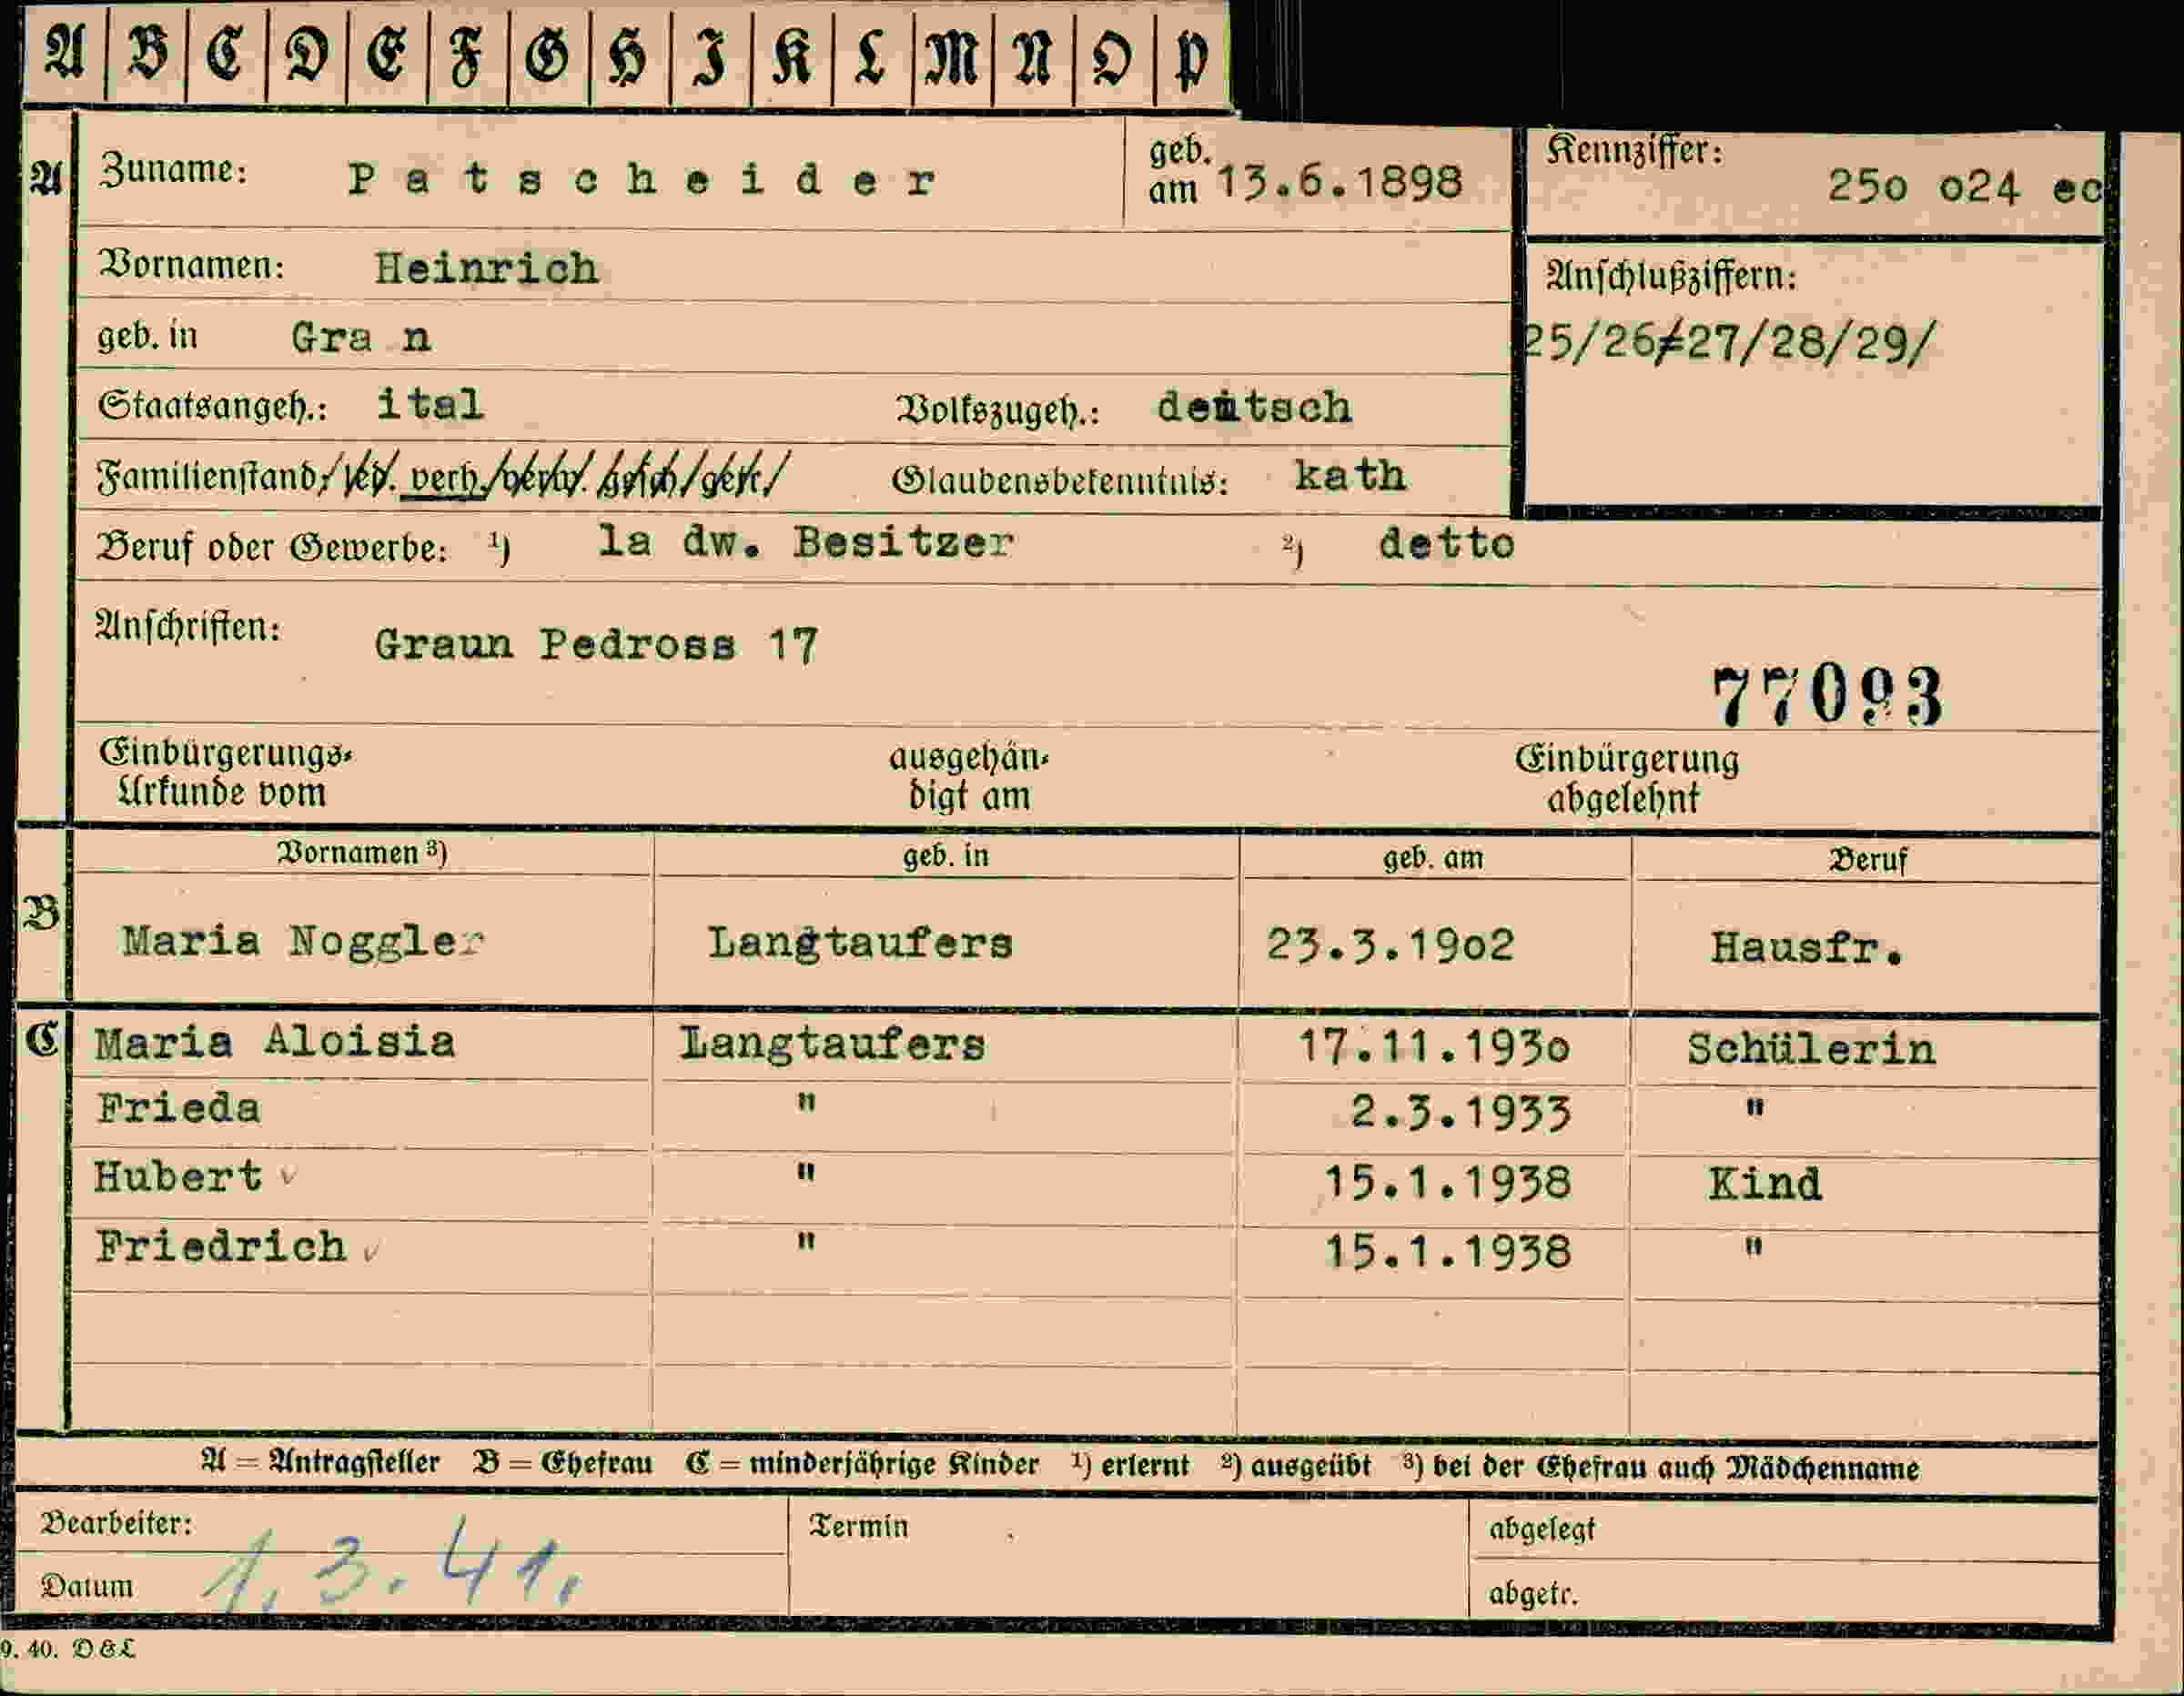 A B C D E F G H I K L M N O P
A Zuname: Patscheider geb. am 13.6.1898 Kennziffer: 25o o24 ec
Vornamen: Heinrich Anschlußziffern:
geb. in Gra n 25/26/27/28/29/
Staatsangeh.: ital Volkszugeh.: deutsch
Familienstand/ led. verh./verw. gesch/getr/ Glaubensbekenntnis: kath
Beruf oder Gewerbe: 1) la dw. Besitzer 2) detto
Anschriften: Graun Pedross 17
77093
Einbürgerungs- ausgehän- Einbürgerung
Urkunde vom digt am abgelehnt
Vornamen 3) geb. in geb. am Beruf
B Maria Noggler Langtaufers 23.3.19o2 Hausfr.
C Maria Aloisia Langtaufers 17.11.193o Schülerin
Frieda " 2.3.1933 "
Hubert v " 15.1.1938 Kind
Friedrich v " 15.1.1938 "
A = Antragsteller B = Ehefrau C = minderjährige Kinder 1) erlernt 2) ausgeübt 3) bei der Ehefrau auch Mädchenname
Bearbeiter: Termin abgelegt
Datum 1.3.41. abgetr.
9. 40. D&L